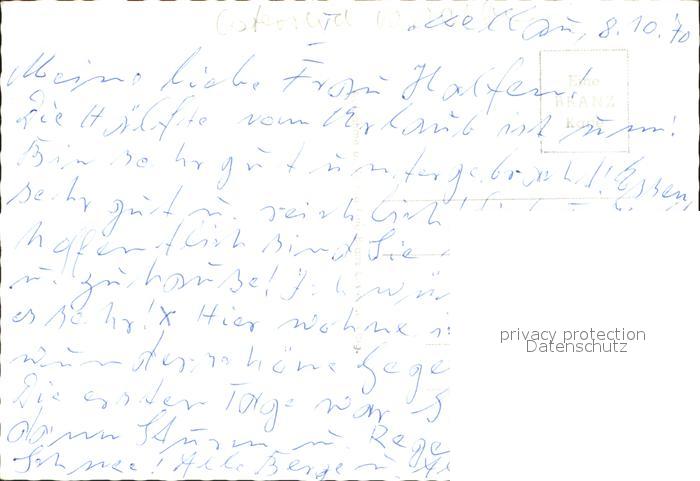 8.10.70
Meine liebe Frau Halfen!
Die Hälfte vom Urlaub ist um!
Bin sehr gut untergebracht! Essen,
sehr gut u. reichlich!
hoffentlich sind Sie
u. zuhause! Ich wün
es sehr! x Hier wohne i
wunderschöne Gege
Die ersten Tage war S
dann Sturm u. Rege
Schnee! Alle Berge u.
Eine
KRANZ
Karte
privacy protection
Datenschutz